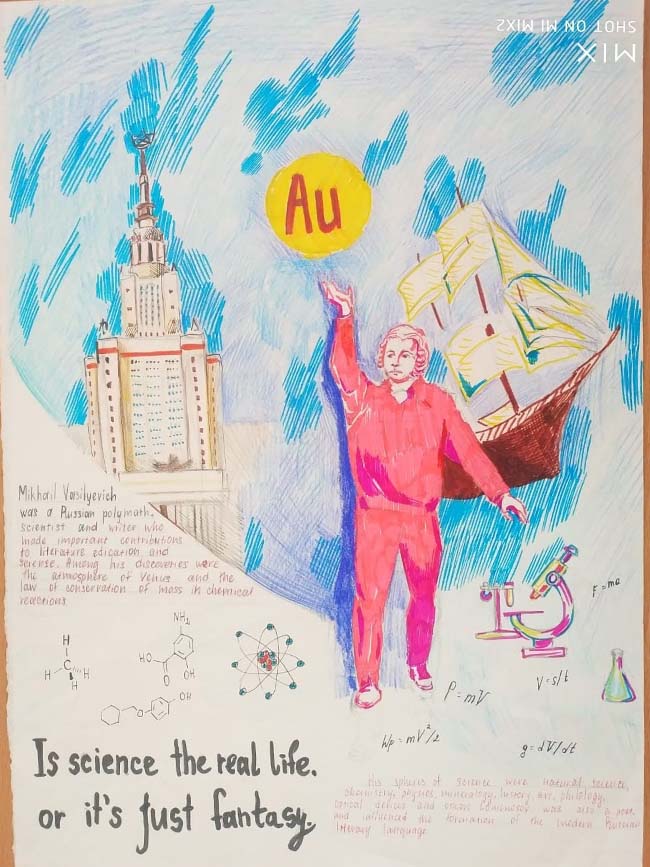 SHOT ON MI MIX2
MIX
Au
Mikhail Vasilyevich
was a Russian polymath,
scientist and writer who
made important contributions
to literature edication and
science. Among his discoveries were
the atmosphere of Venus and the
law of conservation of mass in chemical
reactions
F=ma
H
C
H
H
H
NH₂
HO
O
OH
O
OH
V=s/t
P=mV
Wp=mV²/2
g=dV/dt
Is science the real life.
or it's Just fantasy.
His spheres of science were natural science,
chemistry, physics, mineralogy, history, art, philology,
optical devices and others. Lomonosov was also a poet
and influenced the formation of the modern Russian
literary language